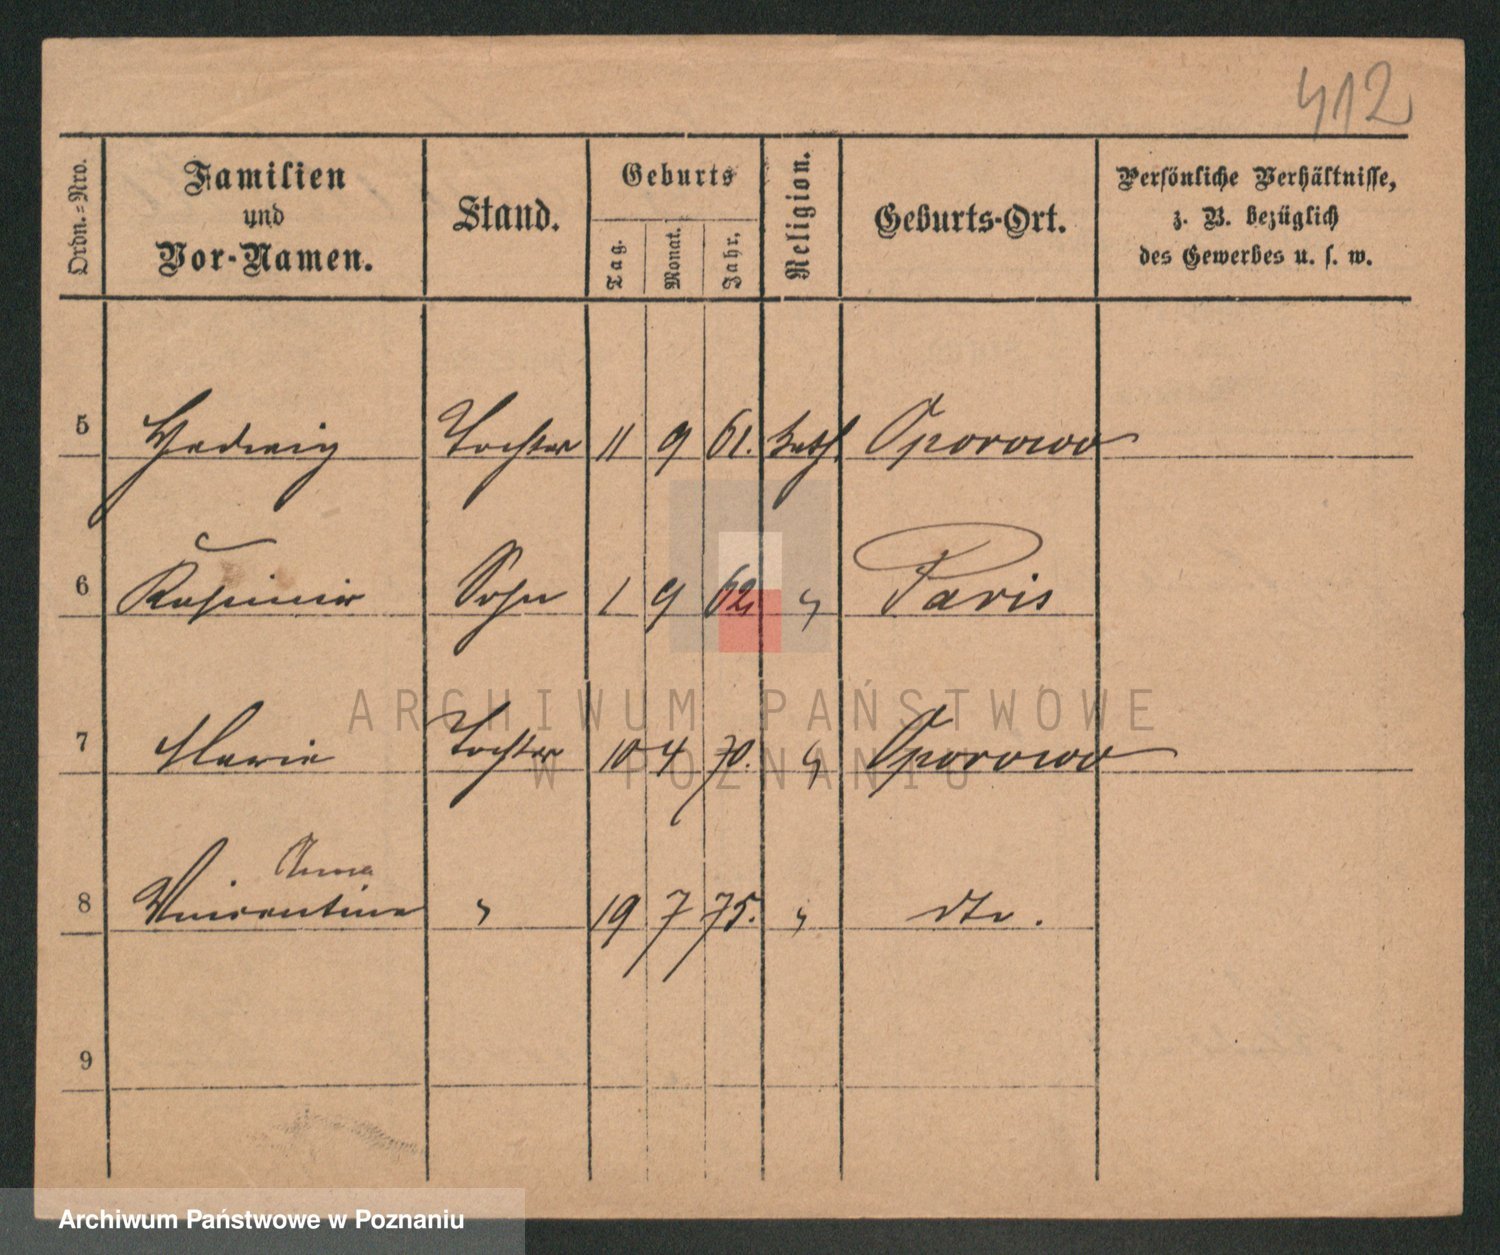 412
Ordn.=Nro.
Familien
und
Vor-Namen.
Stand.
Geburts
Tag.
Monat.
Jahr.
Religion.
Geburts-Ort.
Persönliche Verhältnisse,
z. B. bezüglich
des Gewerbes u. s. w.
5 Hedwig Tochter 11 9 61. kath. Oporowo
6 Kasimir Sohn 1 9 62 " Paris
7 Marie Tochter 10 4 70. " Oporowo
Anna
8 Vincentine " 19 7 75. " dto.
9
ARCHIWUM PAŃSTWOWE
W POZNANIU
Archiwum Państwowe w Poznaniu